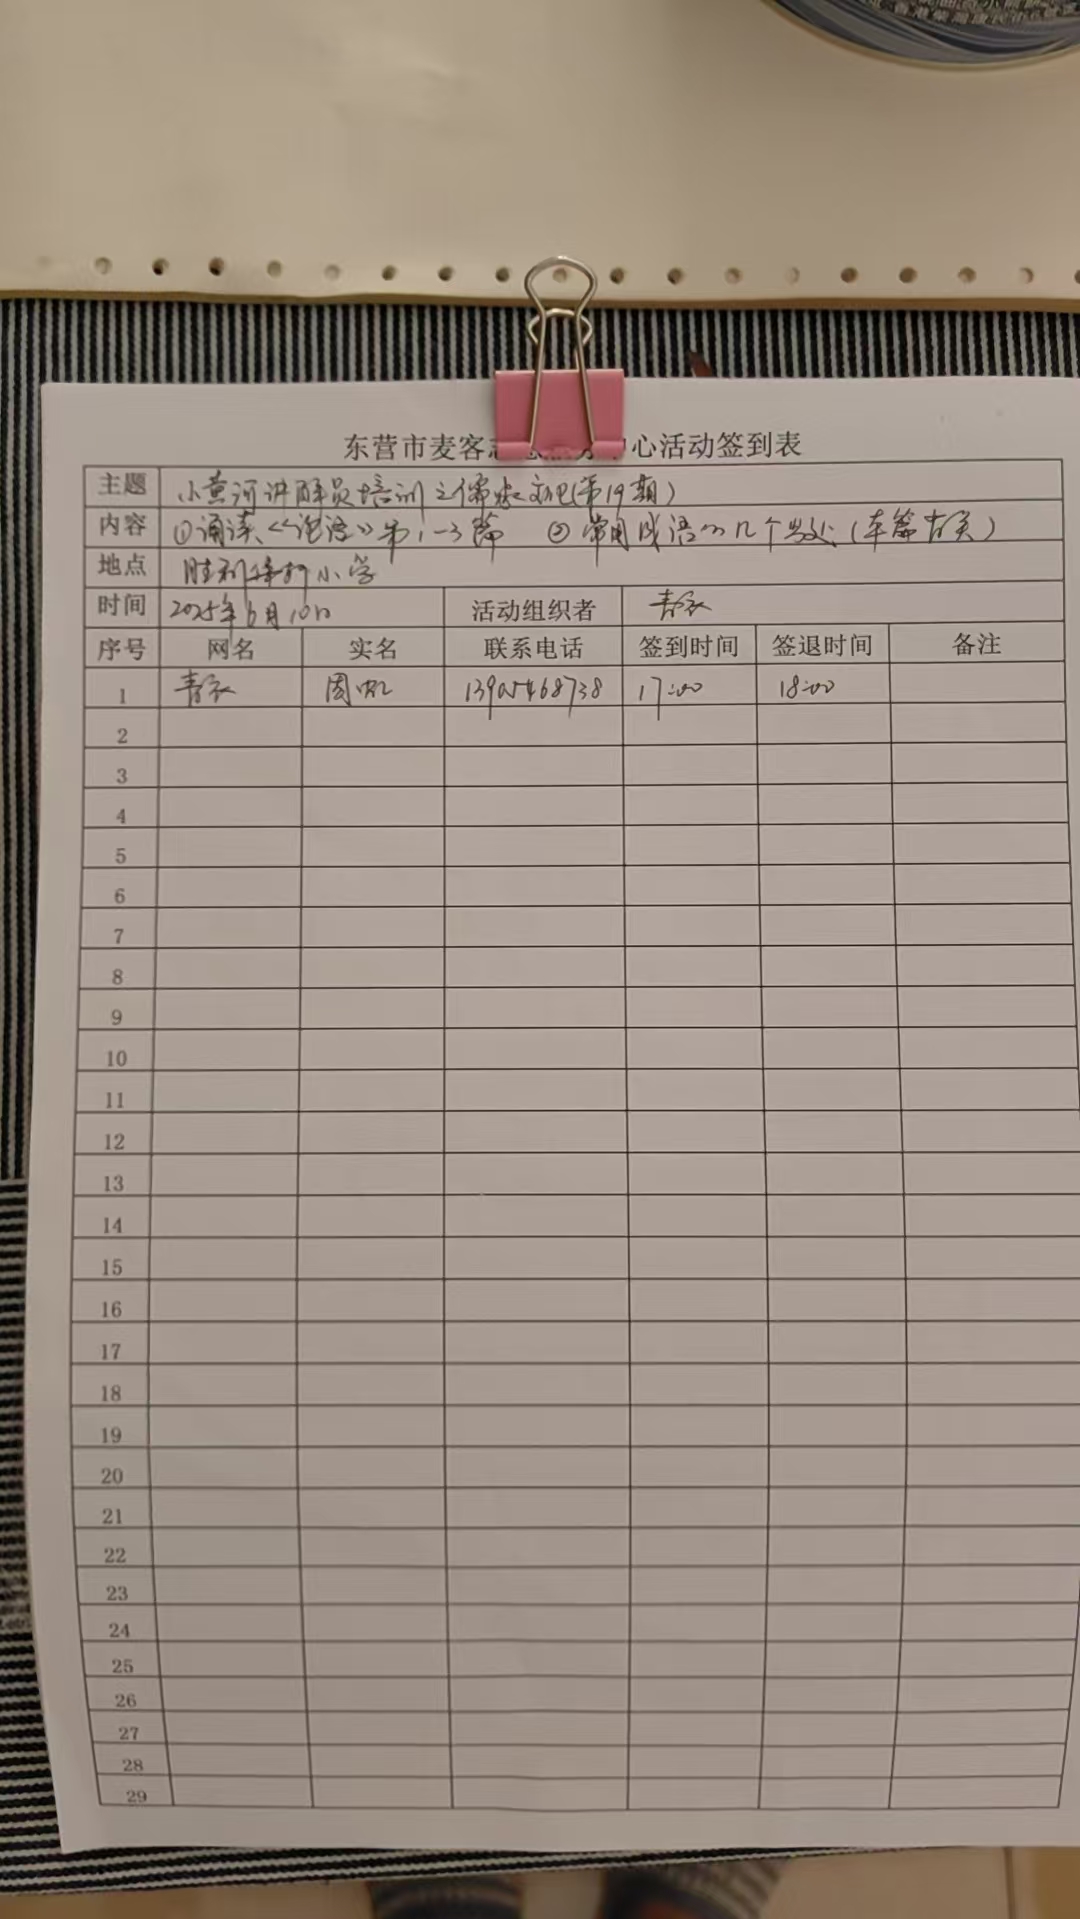 东营市麦客 中心活动签到表
主题 小黄河讲解员培训之儒家文化(第19期)
内容 ①诵读《论语》第1-3篇 ②常用成语的几个出处(本篇有关)
地点 胜利 小学
时间 2025年6月10日 活动组织者 青衣
序号 网名 实名 联系电话 签到时间 签退时间 备注
1 青衣 周帆 13905468738 17:00 18:00
2
3
4
5
6
7
8
9
10
11
12
13
14
15
16
17
18
19
20
21
22
23
24
25
26
27
28
29